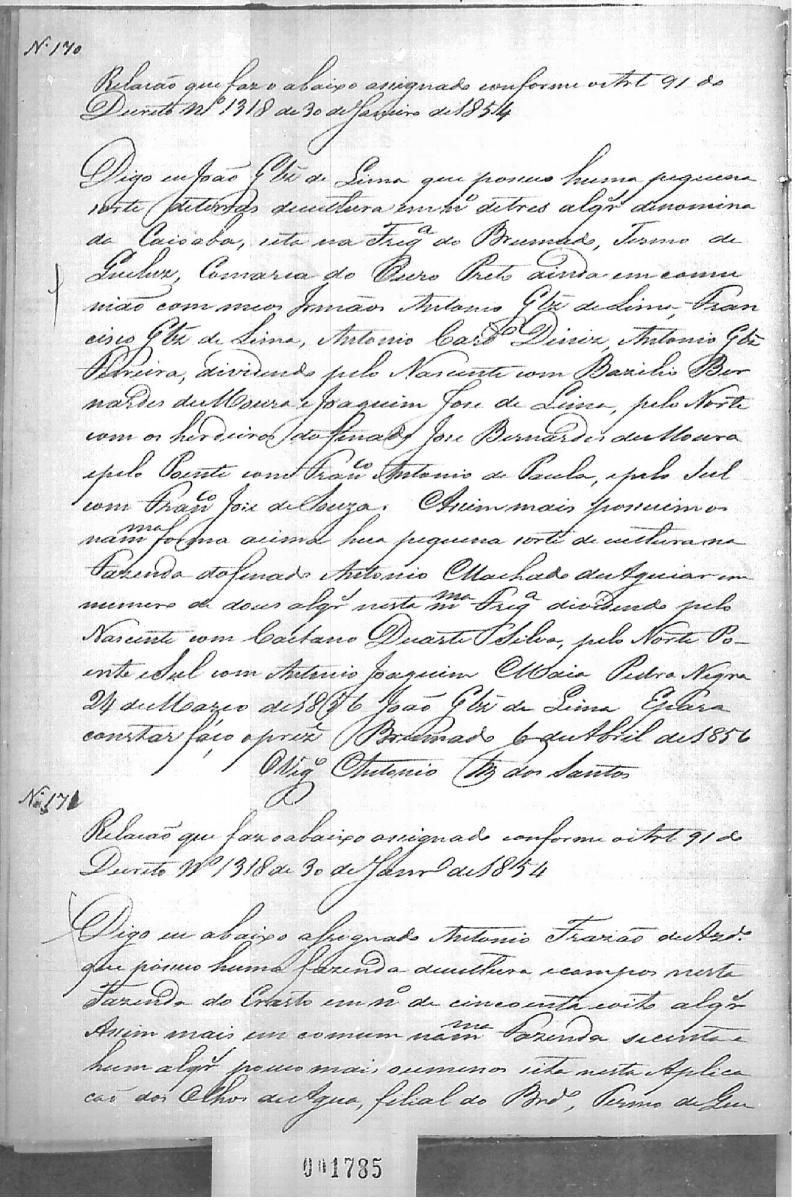 Nº 170
Relacão que faz o abaixo assignado conforme o Art 91 do
Decreto Nº 1318 de 30 de Janeiro de 1854
Digo eu João Glz de Lima que possuo huma pequena
sorte de terras de cultura em nº de tres algr denomina
da Caioaba, sita na Frega do Brumado, Termo de
Queluz, Comarca do Ouro Preto ainda em comu
nião com meos Irmãos Antonio Glz de Lima, Fran
cisco Glz de Lima, Antonio Cardo Diniz, Antonio Glz
Pereira, dividindo pelo Nascente com Bazilio Ber
nardes de Moura e Joaquim Jose de Lima, pelo Norte
com os herdeiros do finado Jose Bernardes de Moura
e pelo Poente com Franco Antonio de Paula, e pelo Sul
com Franco Jose de Souza. Assim mais possuimos
na mma forma acima hua pequena sorte de cultura na
Fazenda do finado Antonio Machado de Aguiar em
numero de dous algr nesta mma Frega dividindo pelo
Nascente com Caetano Duarte Silva, pelo Norte Po-
ente e Sul com Antonio Joaquim Maia Pedra Negra
24 de Março de 1856 João Glz de Lima E para
constar faço o prezte Brumado 6 de Abril de 1856
O Vigo Antonio dos Santos
Nº 171
Relacão que faz o abaixo assignado conforme o Art 91 do
Decreto Nº 1318 de 30 de Janro de 1854
Digo eu abaixo assignado Antonio Frazão de Azdo
que possuo huma fazenda de cultura e campos nesta
Fazenda do Crasto em nº de cincoenta e oito algr
Assim mais em comum na mma Fazenda secenta e
hum algr pouco mais ou menos sita nesta Aplica
cão dos Olhos de Agua, filial do Brdo, Termo de Que
001785